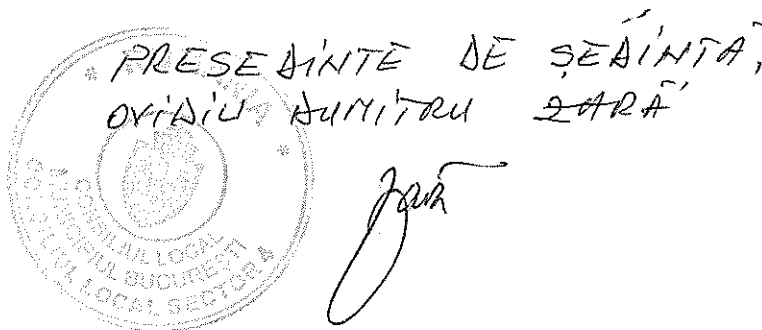 PRESEDINTE DE ȘEDINTĂ,
OVIDIU DUMITRU ZARĂ
Zară
ROMÂNIA
CONSILIUL LOCAL
MUNICIPIUL BUCUREȘTI
CONSILIUL LOCAL SECTOR